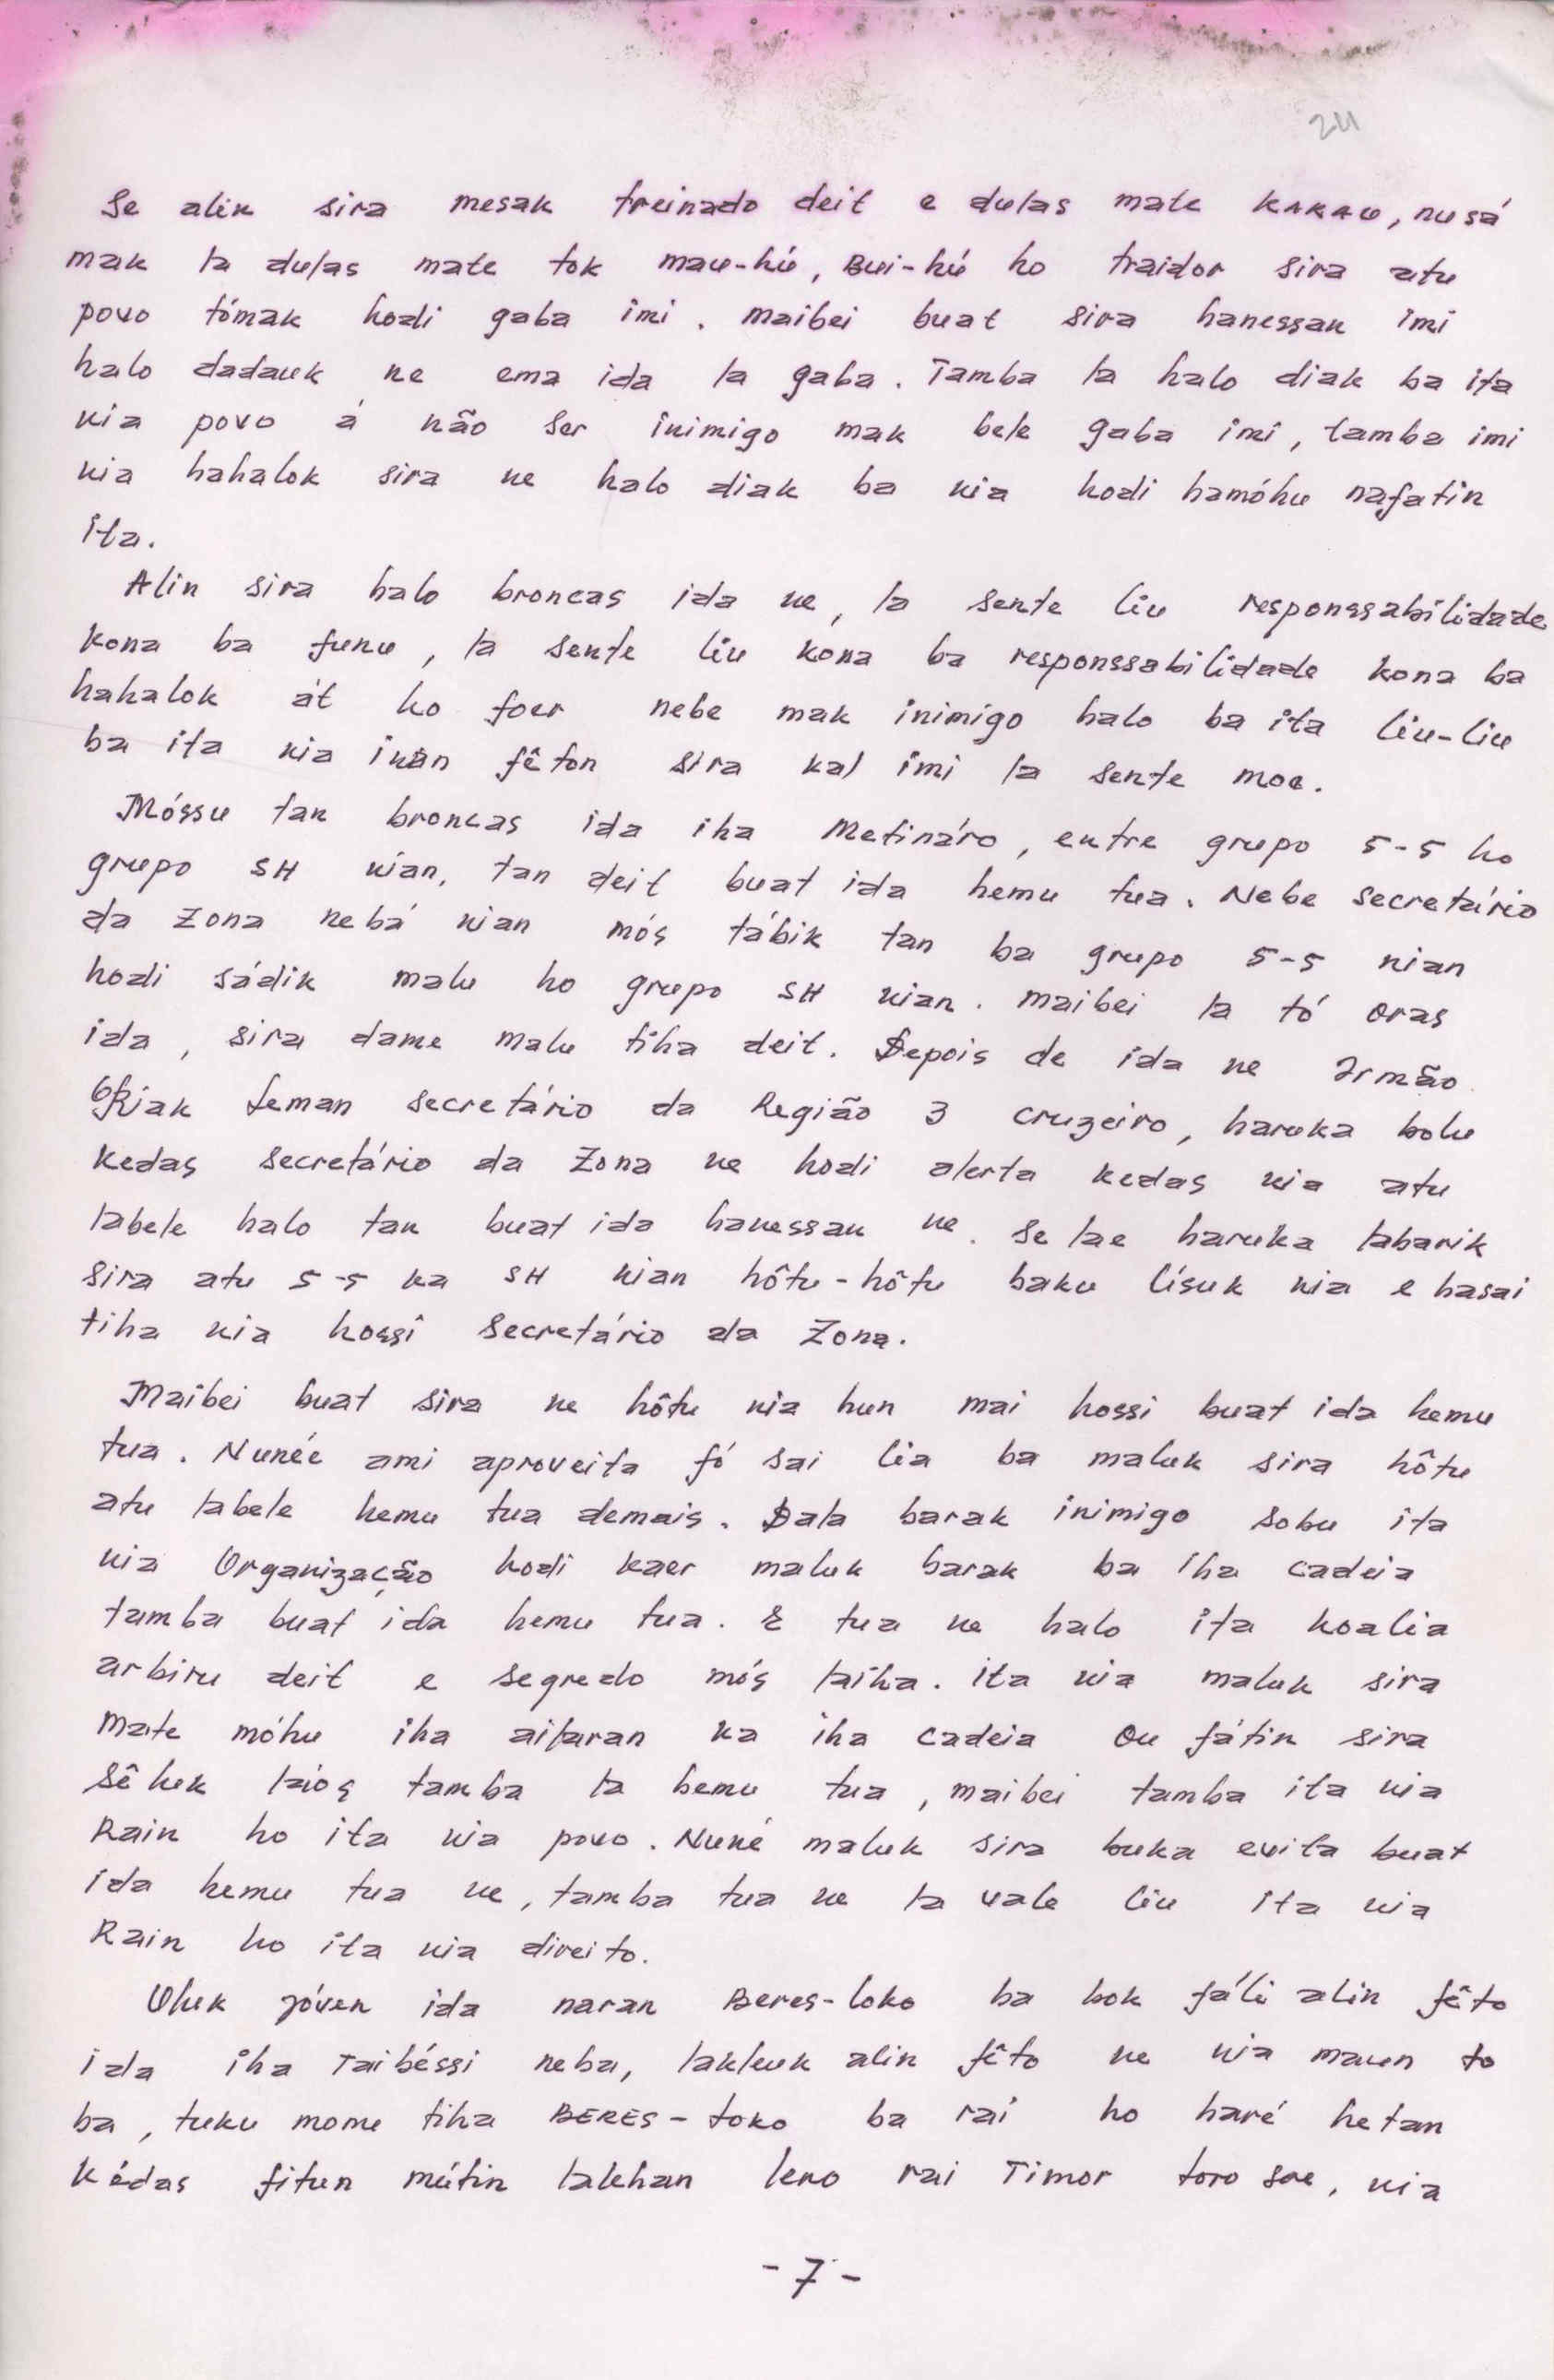 211
Se alin sira mesak treinado deit e dulas mate KAKAU, nusá
mak la dulas mate tok mau-hú, Bui-hú ho traidor sira atu
povo tómak hodi gaba imi. maibei buat sira hanessan imi
halo dadauk ne ema ida la gaba. Tamba la halo diak ba ita
nia povo á não ser inimigo mak bele gaba imi, tamba imi
nia hahalok sira ne halo diak ba nia hodi hamóhu nafatin
ita.
Alin sira halo broncas ida ne, la sente liu responssabilidade
kona ba funu, la sente liu kona ba responssabilidade kona ba
hahalok át ho foer nebe mak inimigo halo ba ita liu-liu
ba ita nia inan fêton sira kal imi la sente moe.
Móssu tan broncas ida iha Metináro, entre grupo 5-5 ho
grupo SH nian, tan deit buat ida hemu tua. Nebe secretário
da Zona nebá nian mós tábik tan ba grupo 5-5 nian
hodi sádik malu ho grupo SH nian. maibei la tó oras
ida, sira dame malu tiha deit. Depois de ida ne Irmão
Riak Leman secretário da Região 3 cruzeiro, haruka bolu
kedas secretário da Zona ne hodi alerta kedas nia atu
labele halo tan buat ida hanessan ne. Se lae haruka labarik
sira atu 5-5 ka SH nian hôtu-hôtu baku lísuk nia e hasai
tiha nia hossi Secretário da Zona.
Maibei buat sira ne hôtu nia hun mai hossi buat ida hemu
tua. Nunée ami aproveita fó sai lia ba maluk sira hôtu
atu labele hemu tua demais. Dala barak inimigo sobu ita
nia Organização hodi kaer maluk barak ba iha cadeia
tamba buat ida hemu tua. E tua ne halo ita koalia
arbiru deit e segredo mós laiha. ita nia maluk sira
mate móhu iha ailaran ka iha cadeia ou fátin sira
sêluk laiós tamba la hemu tua, maibei tamba ita nia
Rain ho ita nia povo. Nuné maluk sira buka evita buat
ida hemu tua ne, tamba tua ne la vale liu ita nia
Rain ho ita nia direito.
Uluk jóven ida naran Beres-loko ba bok fáli alin fêto
ida iha Taibéssi neba, lakleuk alin fêto ne nia maun to
ba, tuku mome tiha BERES-toko ba rai ho haré hetan
kédas fitun mútin lalehan leno rai Timor toro sae, nia
-7-